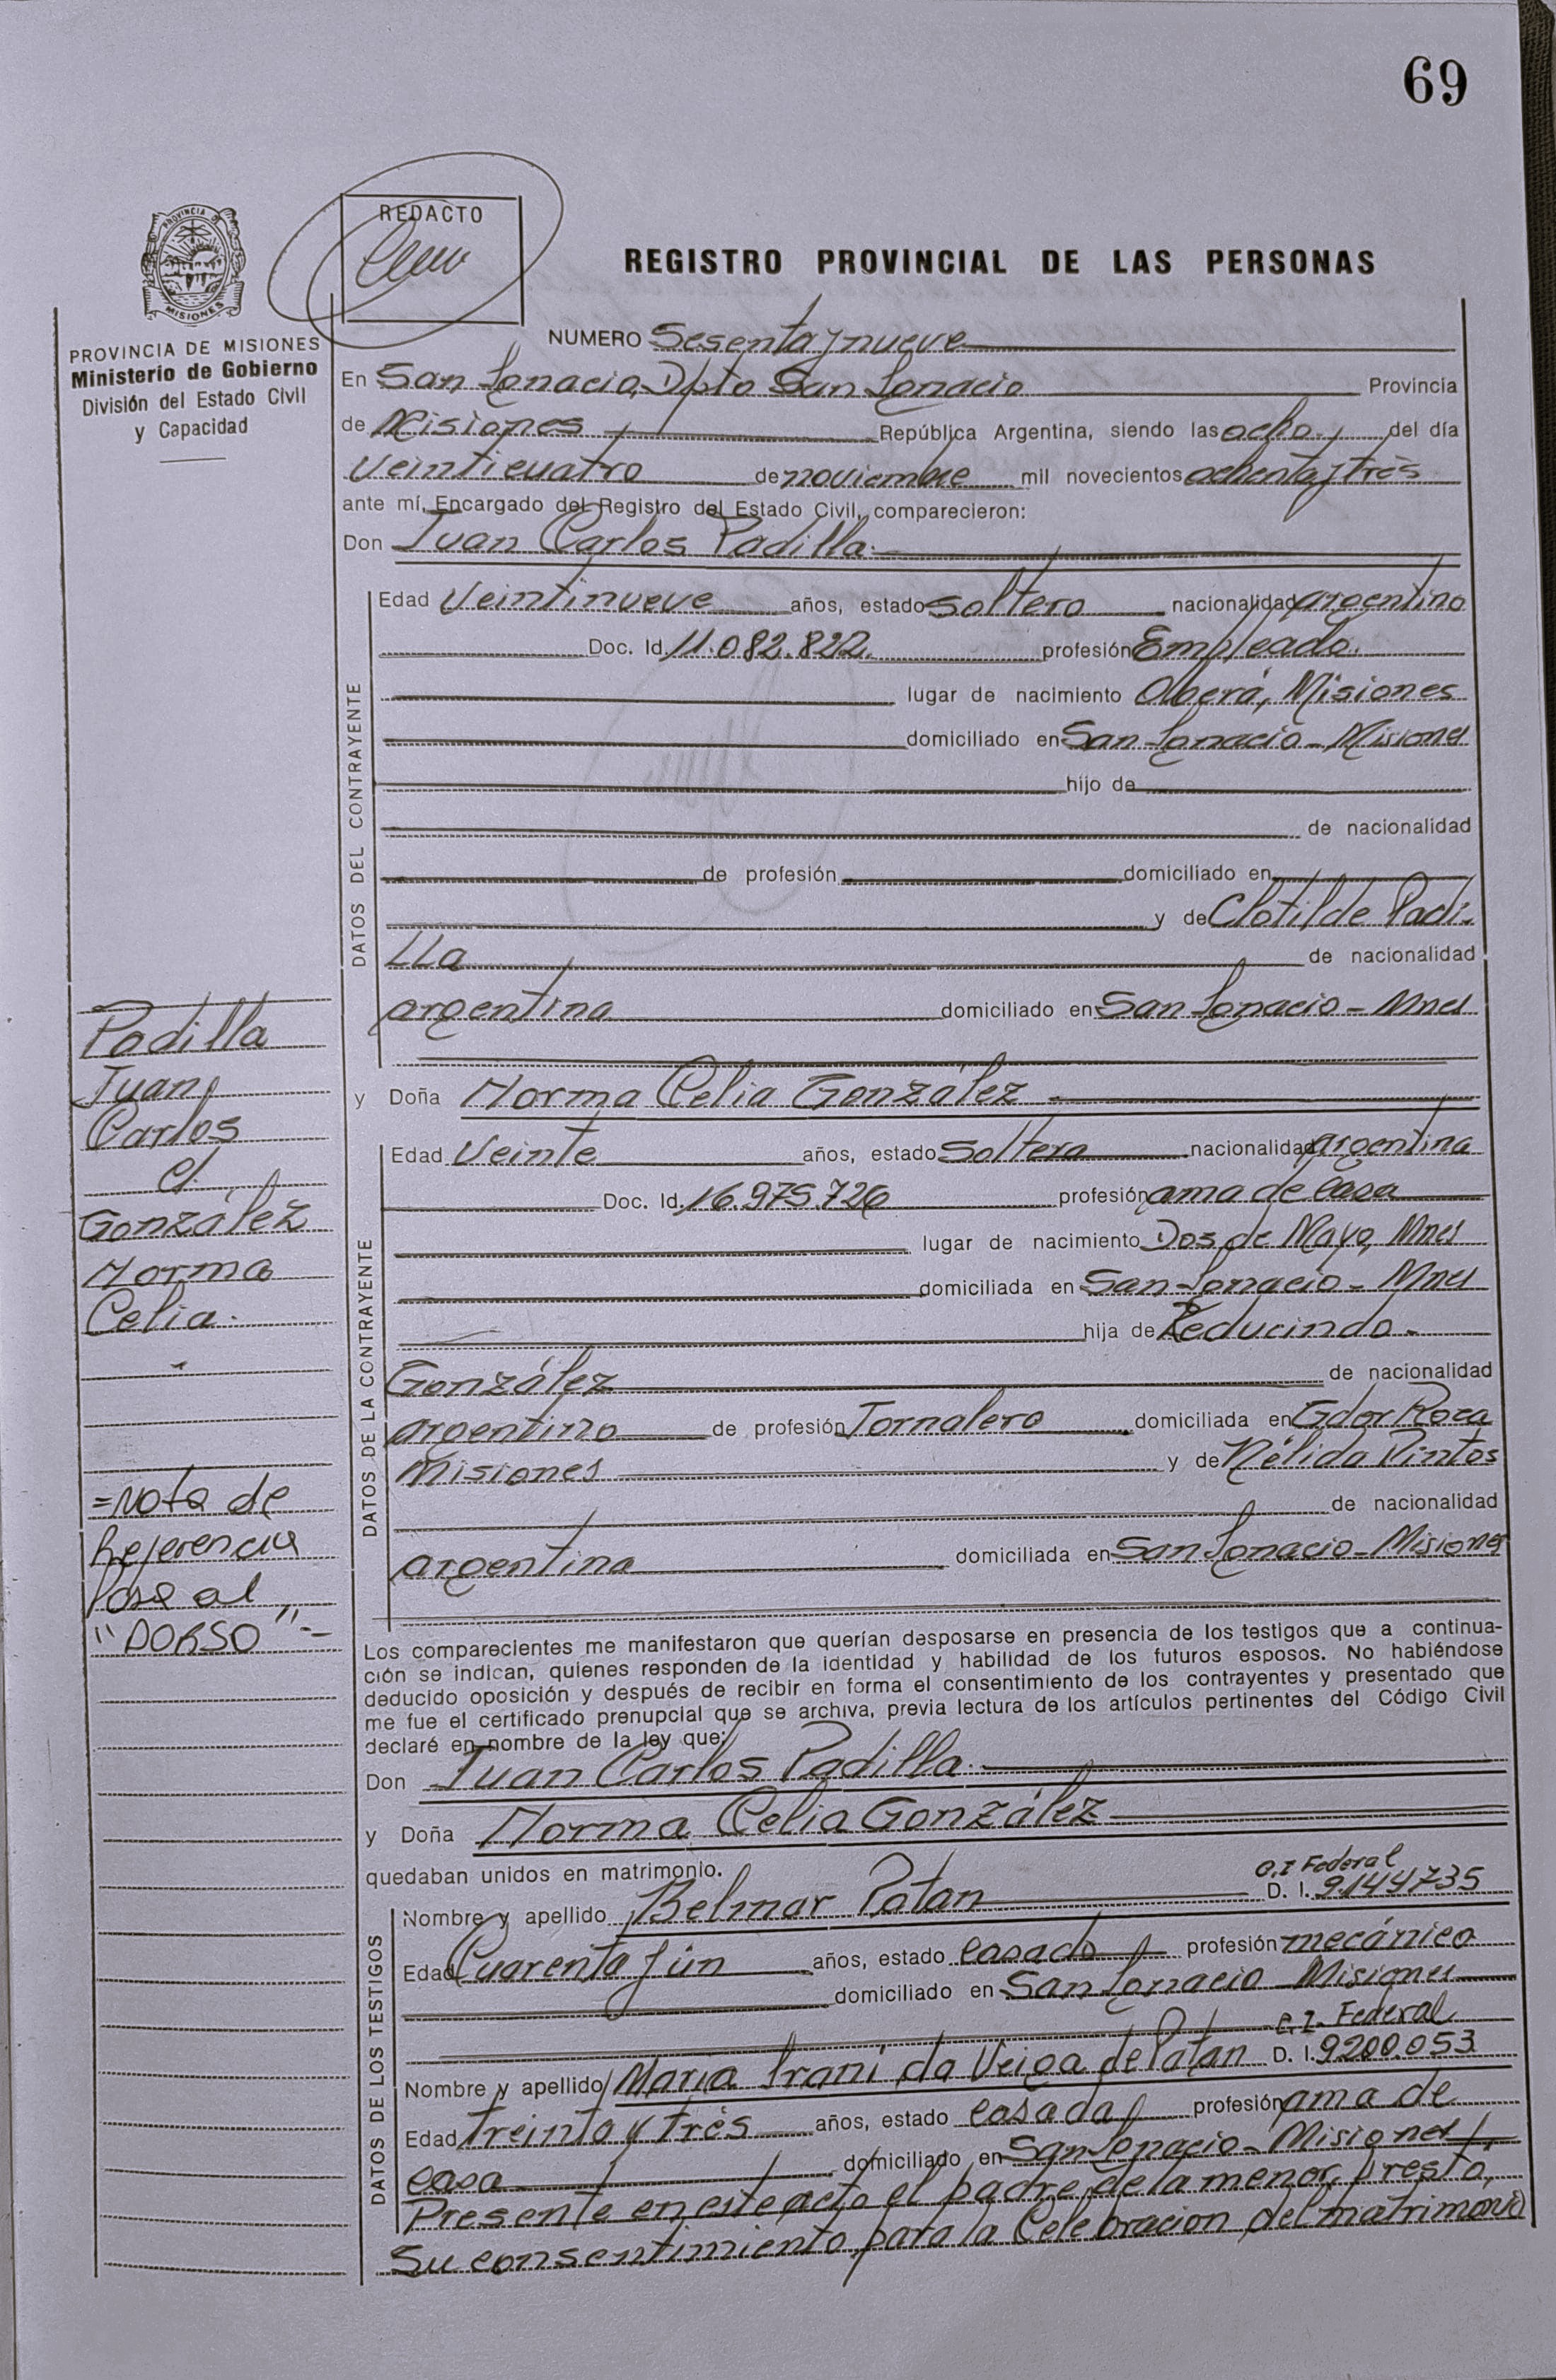 69
PROVINCIA DE
MISIONES
REDACTO
REGISTRO PROVINCIAL DE LAS PERSONAS
PROVINCIA DE MISIONES
Ministerio de Gobierno
División del Estado Civil
y Capacidad
NUMERO Sesenta y nueve
En San Ignacio, Dpto San Ignacio Provincia
de Misiones República Argentina, siendo las ocho del día
veinticuatro de noviembre mil novecientos ochenta y tres
ante mí, Encargado del Registro del Estado Civil, comparecieron:
Don Juan Carlos Padilla
DATOS DEL CONTRAYENTE
Edad Veintinueve años, estado soltero nacionalidad argentino
Doc. Id. 11.082.822 profesión Empleado.
lugar de nacimiento Oberá, Misiones
domiciliado en San Ignacio - Misiones
hijo de
de nacionalidad
de profesión domiciliado en
y de Clotilde Padi-
lla de nacionalidad
argentina domiciliado en San Ignacio - Mnes
y Doña Norma Celia González
DATOS DE LA CONTRAYENTE
Edad Veinte años, estado soltera nacionalidad argentina
Doc. Id. 16.975.726 profesión ama de casa
lugar de nacimiento Dos de Mayo, Mnes
domiciliada en San Ignacio - Mnes
hija de Reducindo
González de nacionalidad
argentino de profesión Jornalero domiciliada en Gdor Roca
Misiones y de Nélida Pintos
de nacionalidad
argentina domiciliada en San Ignacio - Misiones
Padilla
Juan
Carlos
c/.
González
Norma
Celia.
=Nota de
Referencia
Pasa al
"DORSO"=
Los comparecientes me manifestaron que querían desposarse en presencia de los testigos que a continua-
ción se indican, quienes responden de la identidad y habilidad de los futuros esposos. No habiéndose
deducido oposición y después de recibir en forma el consentimiento de los contrayentes y presentado que
me fue el certificado prenupcial que se archiva, previa lectura de los artículos pertinentes del Código Civil
declaré en nombre de la ley que:
Don Juan Carlos Padilla
y Doña Norma Celia González
quedaban unidos en matrimonio.
DATOS DE LOS TESTIGOS
C.I Federal
Nombre y apellido Belmar Patan D. I. 9.144735
Edad Cuarenta y ún años, estado casado profesión mecánico
domiciliado en San Ignacio Misiones
C.I. Federal
Nombre y apellido Maria Irani da Veiga de Patan D. I. 9200.053
Edad treinta y trés años, estado casada profesión ama de
casa domiciliado en San Ignacio - Misiones
Presente en este acto el padre de la menor, prestó,
su consentimiento para la Celebracion del matrimonio